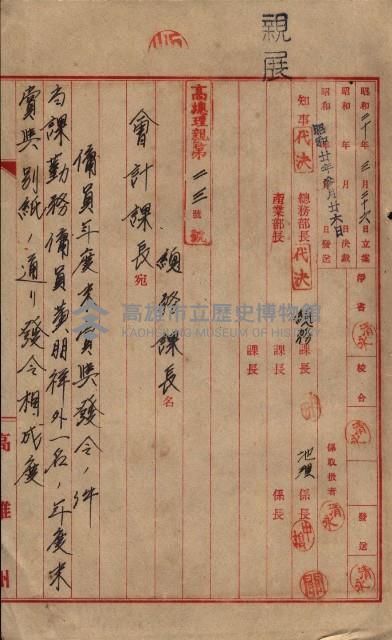 親展
昭和二十年三月二十六日立案
昭和 年 月 日決裁
昭和 年 月 日發送
昭和廿年 月廿六日
淨書 清永
校合 清永
發送 清永
知事 代決
總務部長 代決
產業部長
總務課長
課長
課長
係取扱者 清永
係長
係長
高總理親第一三號
總務課長名
會計課長宛
傭員年度末賞與發令ノ件
當課勤務傭員黃朋祥外一名ノ年度末
賞與別紙ノ通リ發令相成度
高雄州
高雄市立歷史博物館
KAOHSIUNG MUSEUM OF HISTORY